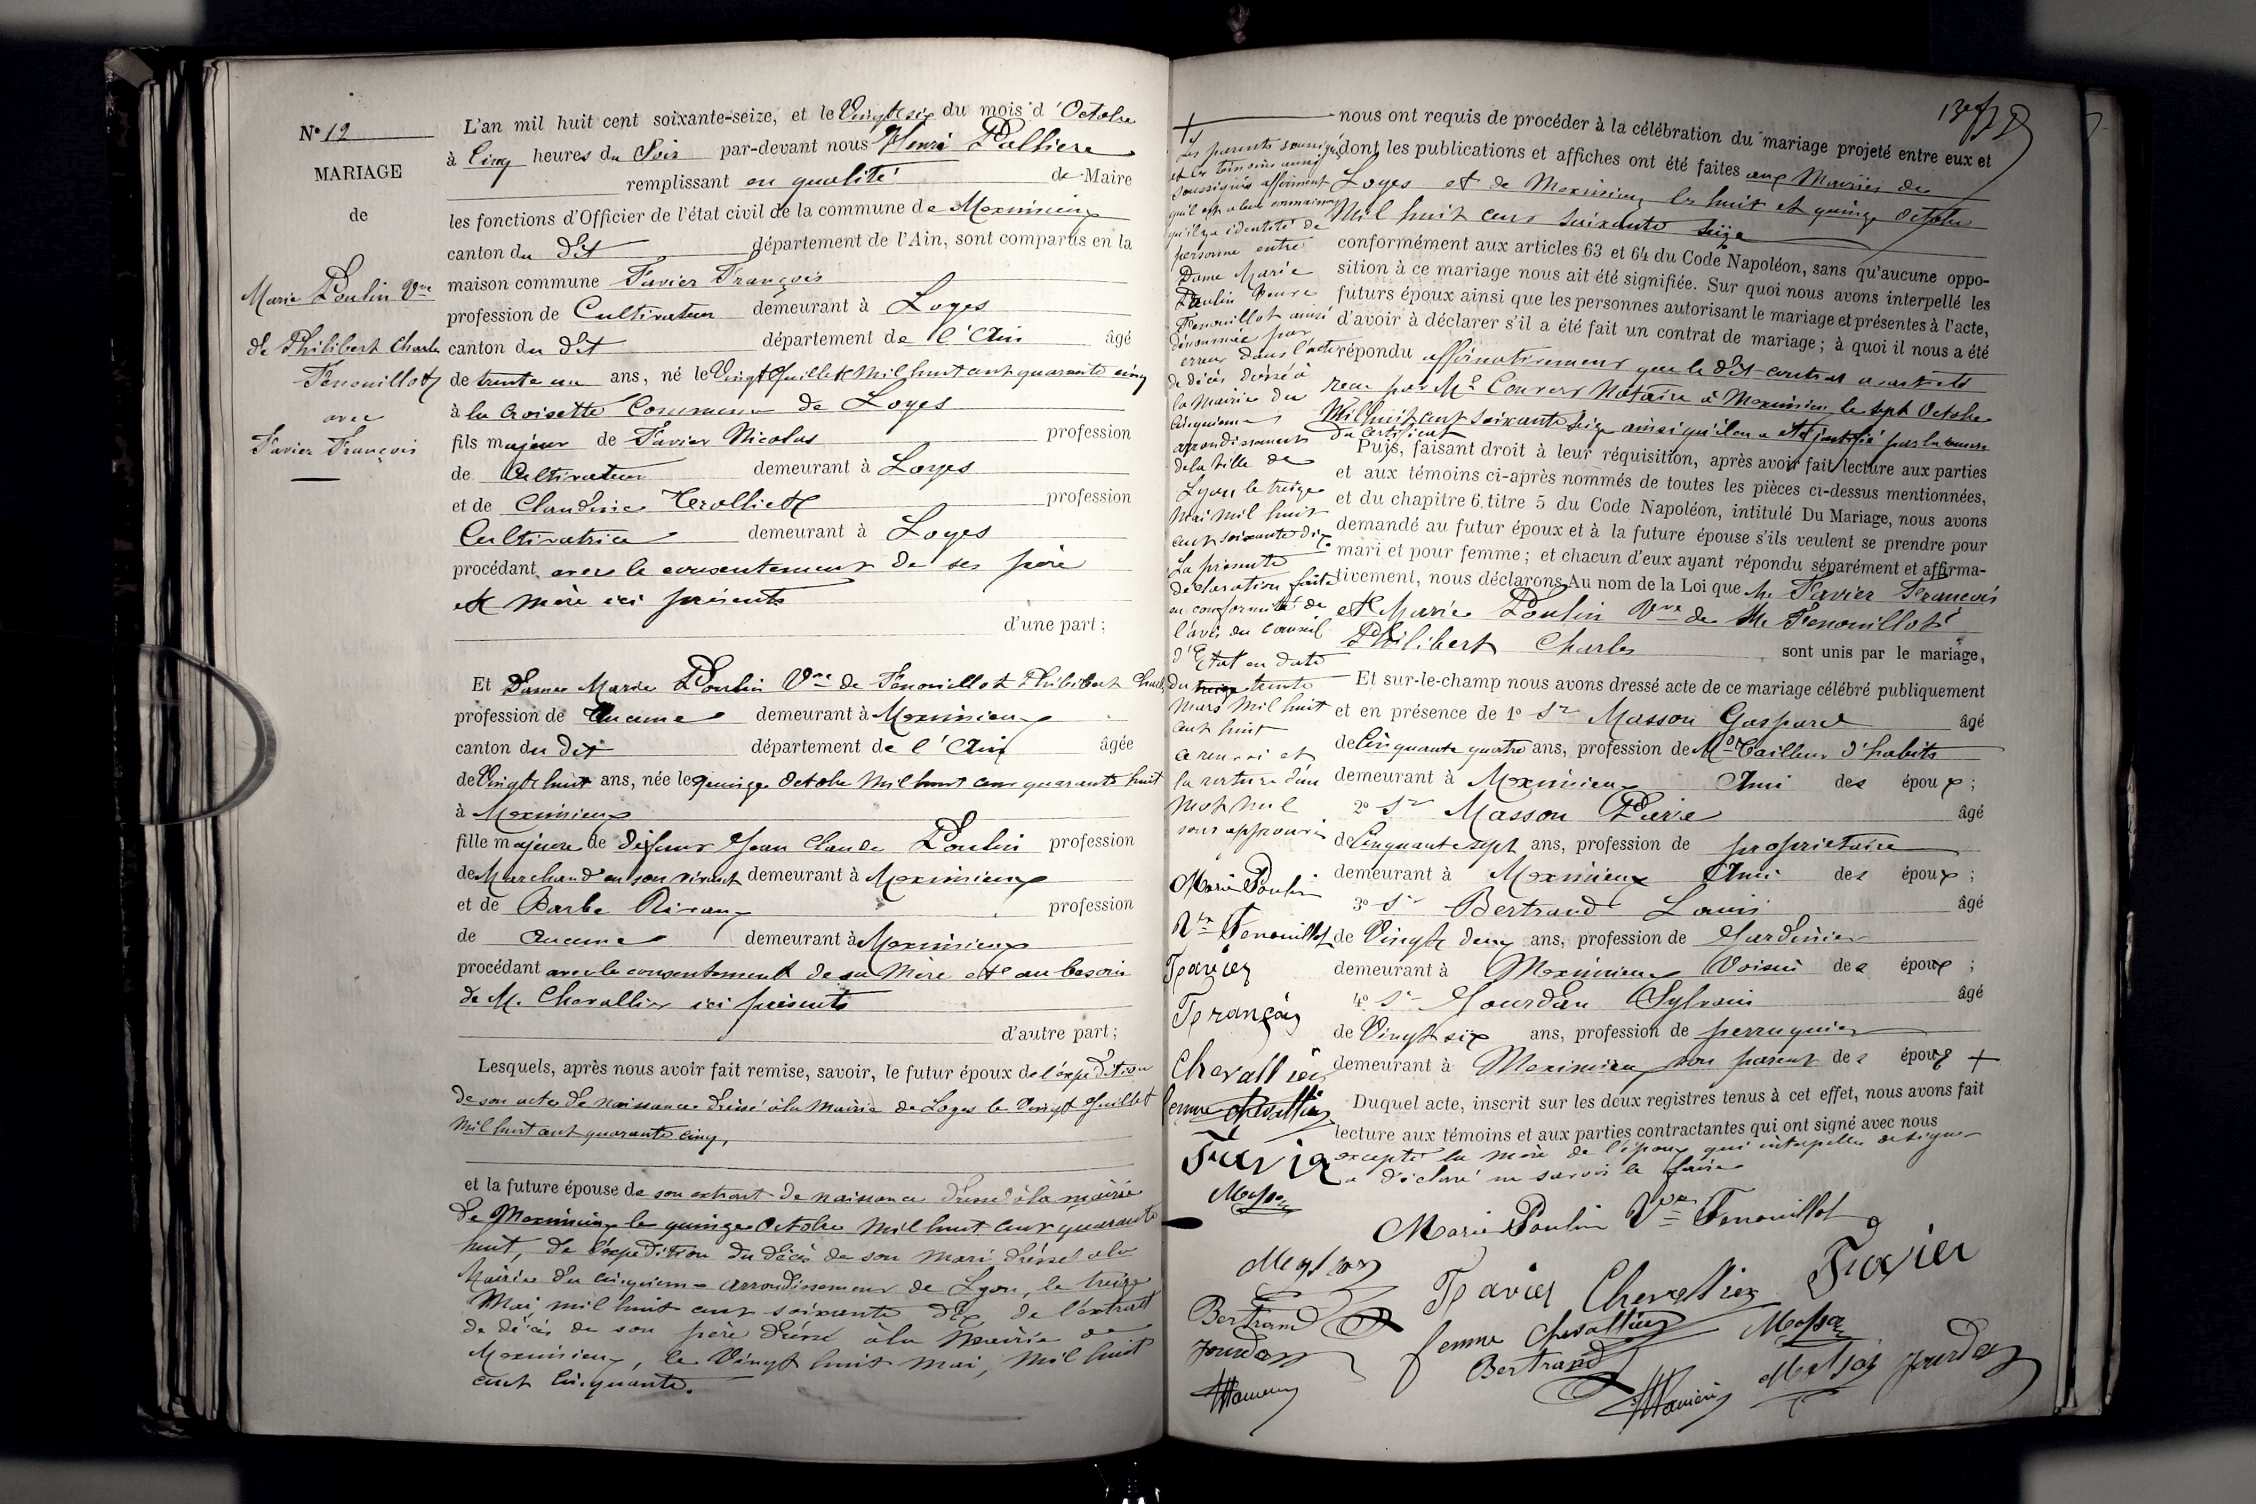 N° 12
MARIAGE
de
Marie Poulin Vve
de Philibert Charles
Fenouillot
avec
Favier François
L'an mil huit cent soixante-seize, et le Vingt six du mois d'Octobre
à Cinq heures du Soir par-devant nous Henri Pallière
remplissant en qualité de Maire
les fonctions d'Officier de l'état civil de la commune de Meximieux
canton du dit département de l'Ain, sont comparus en la
maison commune Favier François
profession de Cultivateur demeurant à Loyes
canton du dit département de l'Ain âgé
de trente un ans, né le Vingt Juillet Mil huit cent quarante cinq
à la Croisette Commune de Loyes
fils majeur de Favier Nicolas profession
de Cultivateur demeurant à Loyes
et de Claudine Trolliet profession
Cultivatrice demeurant à Loyes
procédant avec le consentement de ses père
et mère ici présents
d'une part;
Et Dame Marie Poulin Vve de Fenouillot Philibert Charles
profession de Aucune demeurant à Meximieux
canton du dit département de l'Ain âgée
de Vingt huit ans, née le quinze Octobre Mil huit cent quarante huit
à Meximieux
fille majeure de défunt Jean Claude Poulin profession
de Marchand en son vivant demeurant à Meximieux
et de Barbe profession
de Aucune demeurant à Meximieux
procédant avec le consentement de sa Mère et au besoin
de M. Chevallier ici présents
d'autre part;
Lesquels, après nous avoir fait remise, savoir, le futur époux de l'expédition
de son acte de naissance dressé à la Mairie de Loyes le Vingt Juillet
Mil huit cent quarante cinq,
et la future épouse de son extrait de naissance dressé à la mairie
de Meximieux le quinze Octobre Mil huit cent quarante
huit, de l'expédition du décès de son mari dressé à la
Mairie du cinquième arrondissement de Lyon, le treize
Mai mil huit cent soixante dix, de l'extrait
de décès de son père dressé à la Mairie de
Meximieux, le Vingt huit Mai, Mil huit
cent cinquante.
nous ont requis de procéder à la célébration du mariage projeté entre eux et
dont les publications et affiches ont été faites aux Mairies de
Loyes et de Meximieux les huit et quinze Octobre
Mil huit cent soixante seize
conformément aux articles 63 et 64 du Code Napoléon, sans qu'aucune oppo-
sition à ce mariage nous ait été signifiée. Sur quoi nous avons interpellé les
futurs époux ainsi que les personnes autorisant le mariage et présentes à l'acte,
d'avoir à déclarer s'il a été fait un contrat de mariage; à quoi il nous a été
répondu affirmativement que le dit contrat a été
reçu par Me Convert Notaire à Meximieux le sept Octobre
Mil huit cent soixante seize ainsi qu'il en a été justifié par la remise
du certificat
Puis, faisant droit à leur réquisition, après avoir fait lecture aux parties
et aux témoins ci-après nommés de toutes les pièces ci-dessus mentionnées,
et du chapitre 6 titre 5 du Code Napoléon, intitulé Du Mariage, nous avons
demandé au futur époux et à la future épouse s'ils veulent se prendre pour
mari et pour femme; et chacun d'eux ayant répondu séparément et affirma-
tivement, nous déclarons Au nom de la Loi que M. Favier François
et Marie Poulin Vve de M. Fenouillot
Philibert Charles sont unis par le mariage,
Et sur-le-champ nous avons dressé acte de ce mariage célébré publiquement
et en présence de 1° Sr Masson Gaspard âgé
de Cinquante quatre ans, profession de Md Tailleur d'habits
demeurant à Meximieux Ami des époux;
2° Sr Masson Pierre âgé
de Cinquante sept ans, profession de propriétaire
demeurant à Meximieux Ami des époux;
3° Sr Bertrand Louis âgé
de Vingt deux ans, profession de Jardinier
demeurant à Meximieux Voisin des époux;
4° Sr Jourdan Sylvain âgé
de Vingt six ans, profession de perruquier
demeurant à Meximieux non parent des époux +
Duquel acte, inscrit sur les doux registres tenus à cet effet, nous avons fait
lecture aux témoins et aux parties contractantes qui ont signé avec nous
excepté la mère de l'époux qui interpellée de signer
a déclaré ne savoir le faire
Marie Poulin Vve Fenouillot
Favier Chevallier Favier
femme Chevallier Masson
Bertrand Masson Jourdan
+
Les parents soussignés
et les témoins aussi
soussignés affirment
qu'il est à leur connaissance
qu'il y a identité de
personne entre
Dame Marie
Poulin Veuve
Fenouillot ainsi
dénommée par
erreur dans l'acte
de décès dressé à
la Mairie du
cinquième
arrondissement
de la Ville de
Lyon le treize
Mai mil huit
cent soixante dix
La présente
déclaration faite
en conformité de
l'avis du Conseil
d'Etat en date
du treize trente
Mars Mil huit
cent huit
ce renvoi et
la rature d'un
mot nul
sont approuvés
Marie Poulin
Vve Fenouillot
Favier
François
Chevallier
femme Chevallier
Favier
Masson
Masson
Bertrand
Jourdan